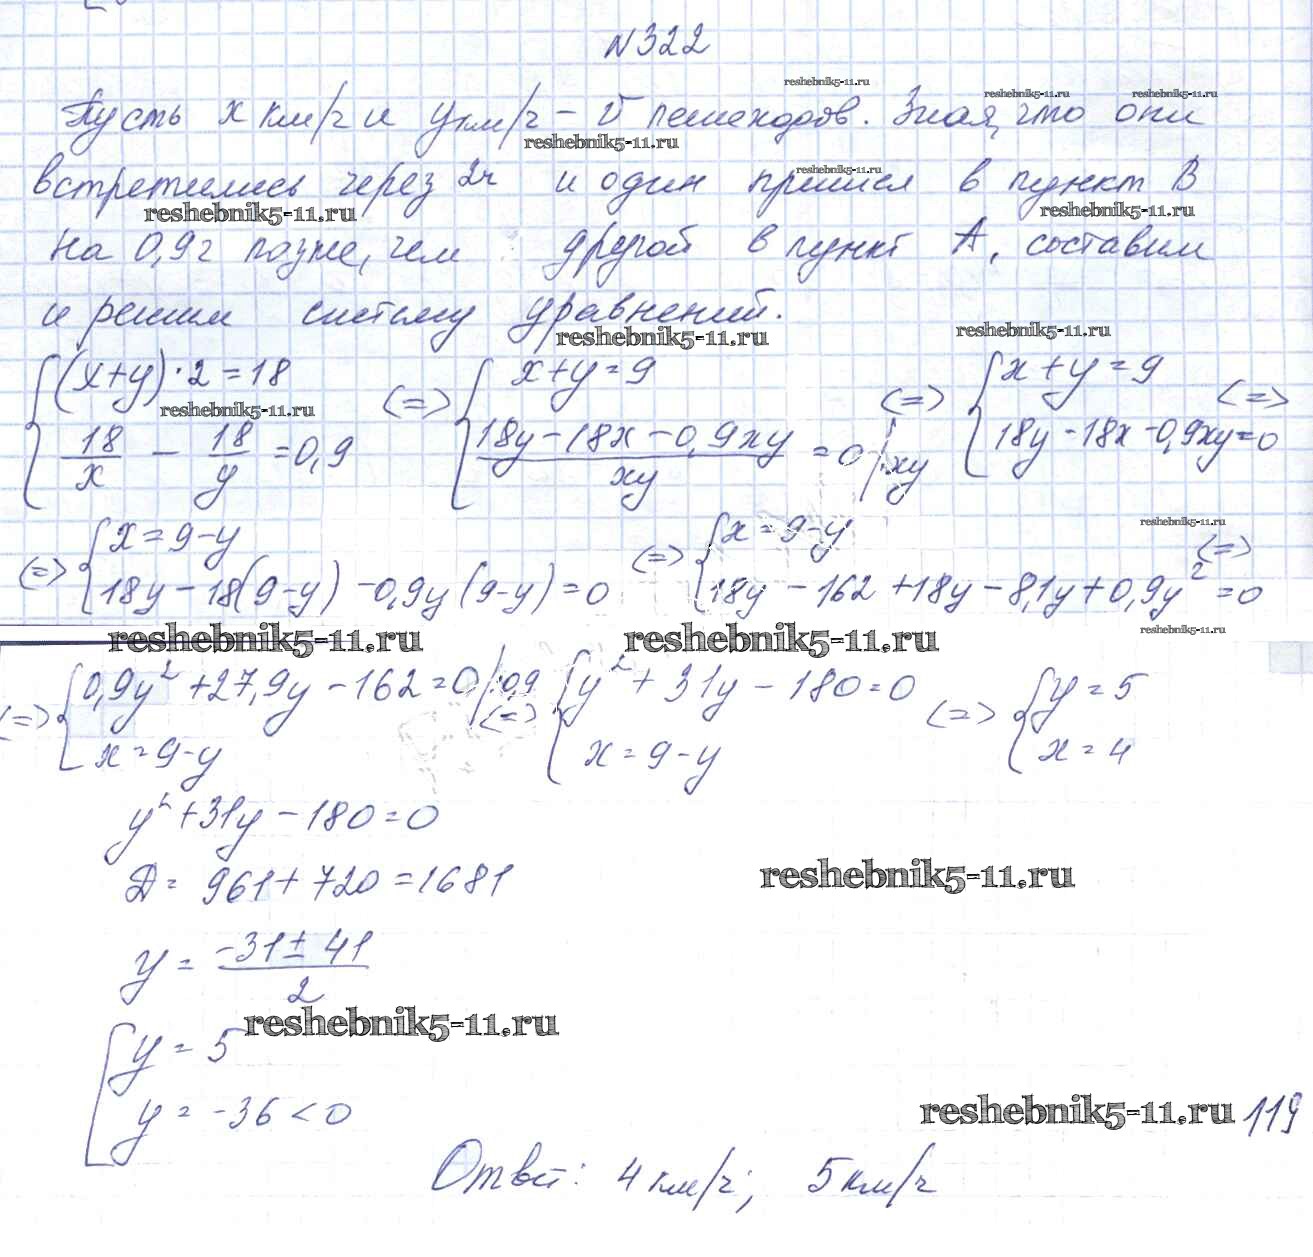 N322
Пусть x км/ч и y км/ч – v пешеходов. Зная, что они
встретились через 2ч и один пришел в пункт В
на 0,9ч позже, чем другой в пункт А, составим
и решим систему уравнений.
{(x+y)·2=18 (=> {x+y=9 (=> {x+y=9 (=>
18/x – 18/y = 0,9 (18y–18x–0,9xy)/xy = 0 |·xy 18y–18x–0,9xy=0
(=> {x=9–y (=> {x=9–y (=>
18y–18(9–y)–0,9y(9–y)=0 18y–162+18y–8,1y+0,9y²=0
(=> {0,9y²+27,9y–162=0 |:0,9 (=> {y²+31y–180=0 (=> {y=5
x=9–y x=9–y x=4
y²+31y–180=0
Д= 961+720=1681
y = (–31±41)/2
[y=5
y=–36<0
Ответ: 4 км/ч; 5 км/ч
119
reshebnik5-11.ru
reshebnik5-11.ru
reshebnik5-11.ru
reshebnik5-11.ru
reshebnik5-11.ru
reshebnik5-11.ru
reshebnik5-11.ru
reshebnik5-11.ru
reshebnik5-11.ru
reshebnik5-11.ru
reshebnik5-11.ru
reshebnik5-11.ru
reshebnik5-11.ru
reshebnik5-11.ru
reshebnik5-11.ru
reshebnik5-11.ru
reshebnik5-11.ru